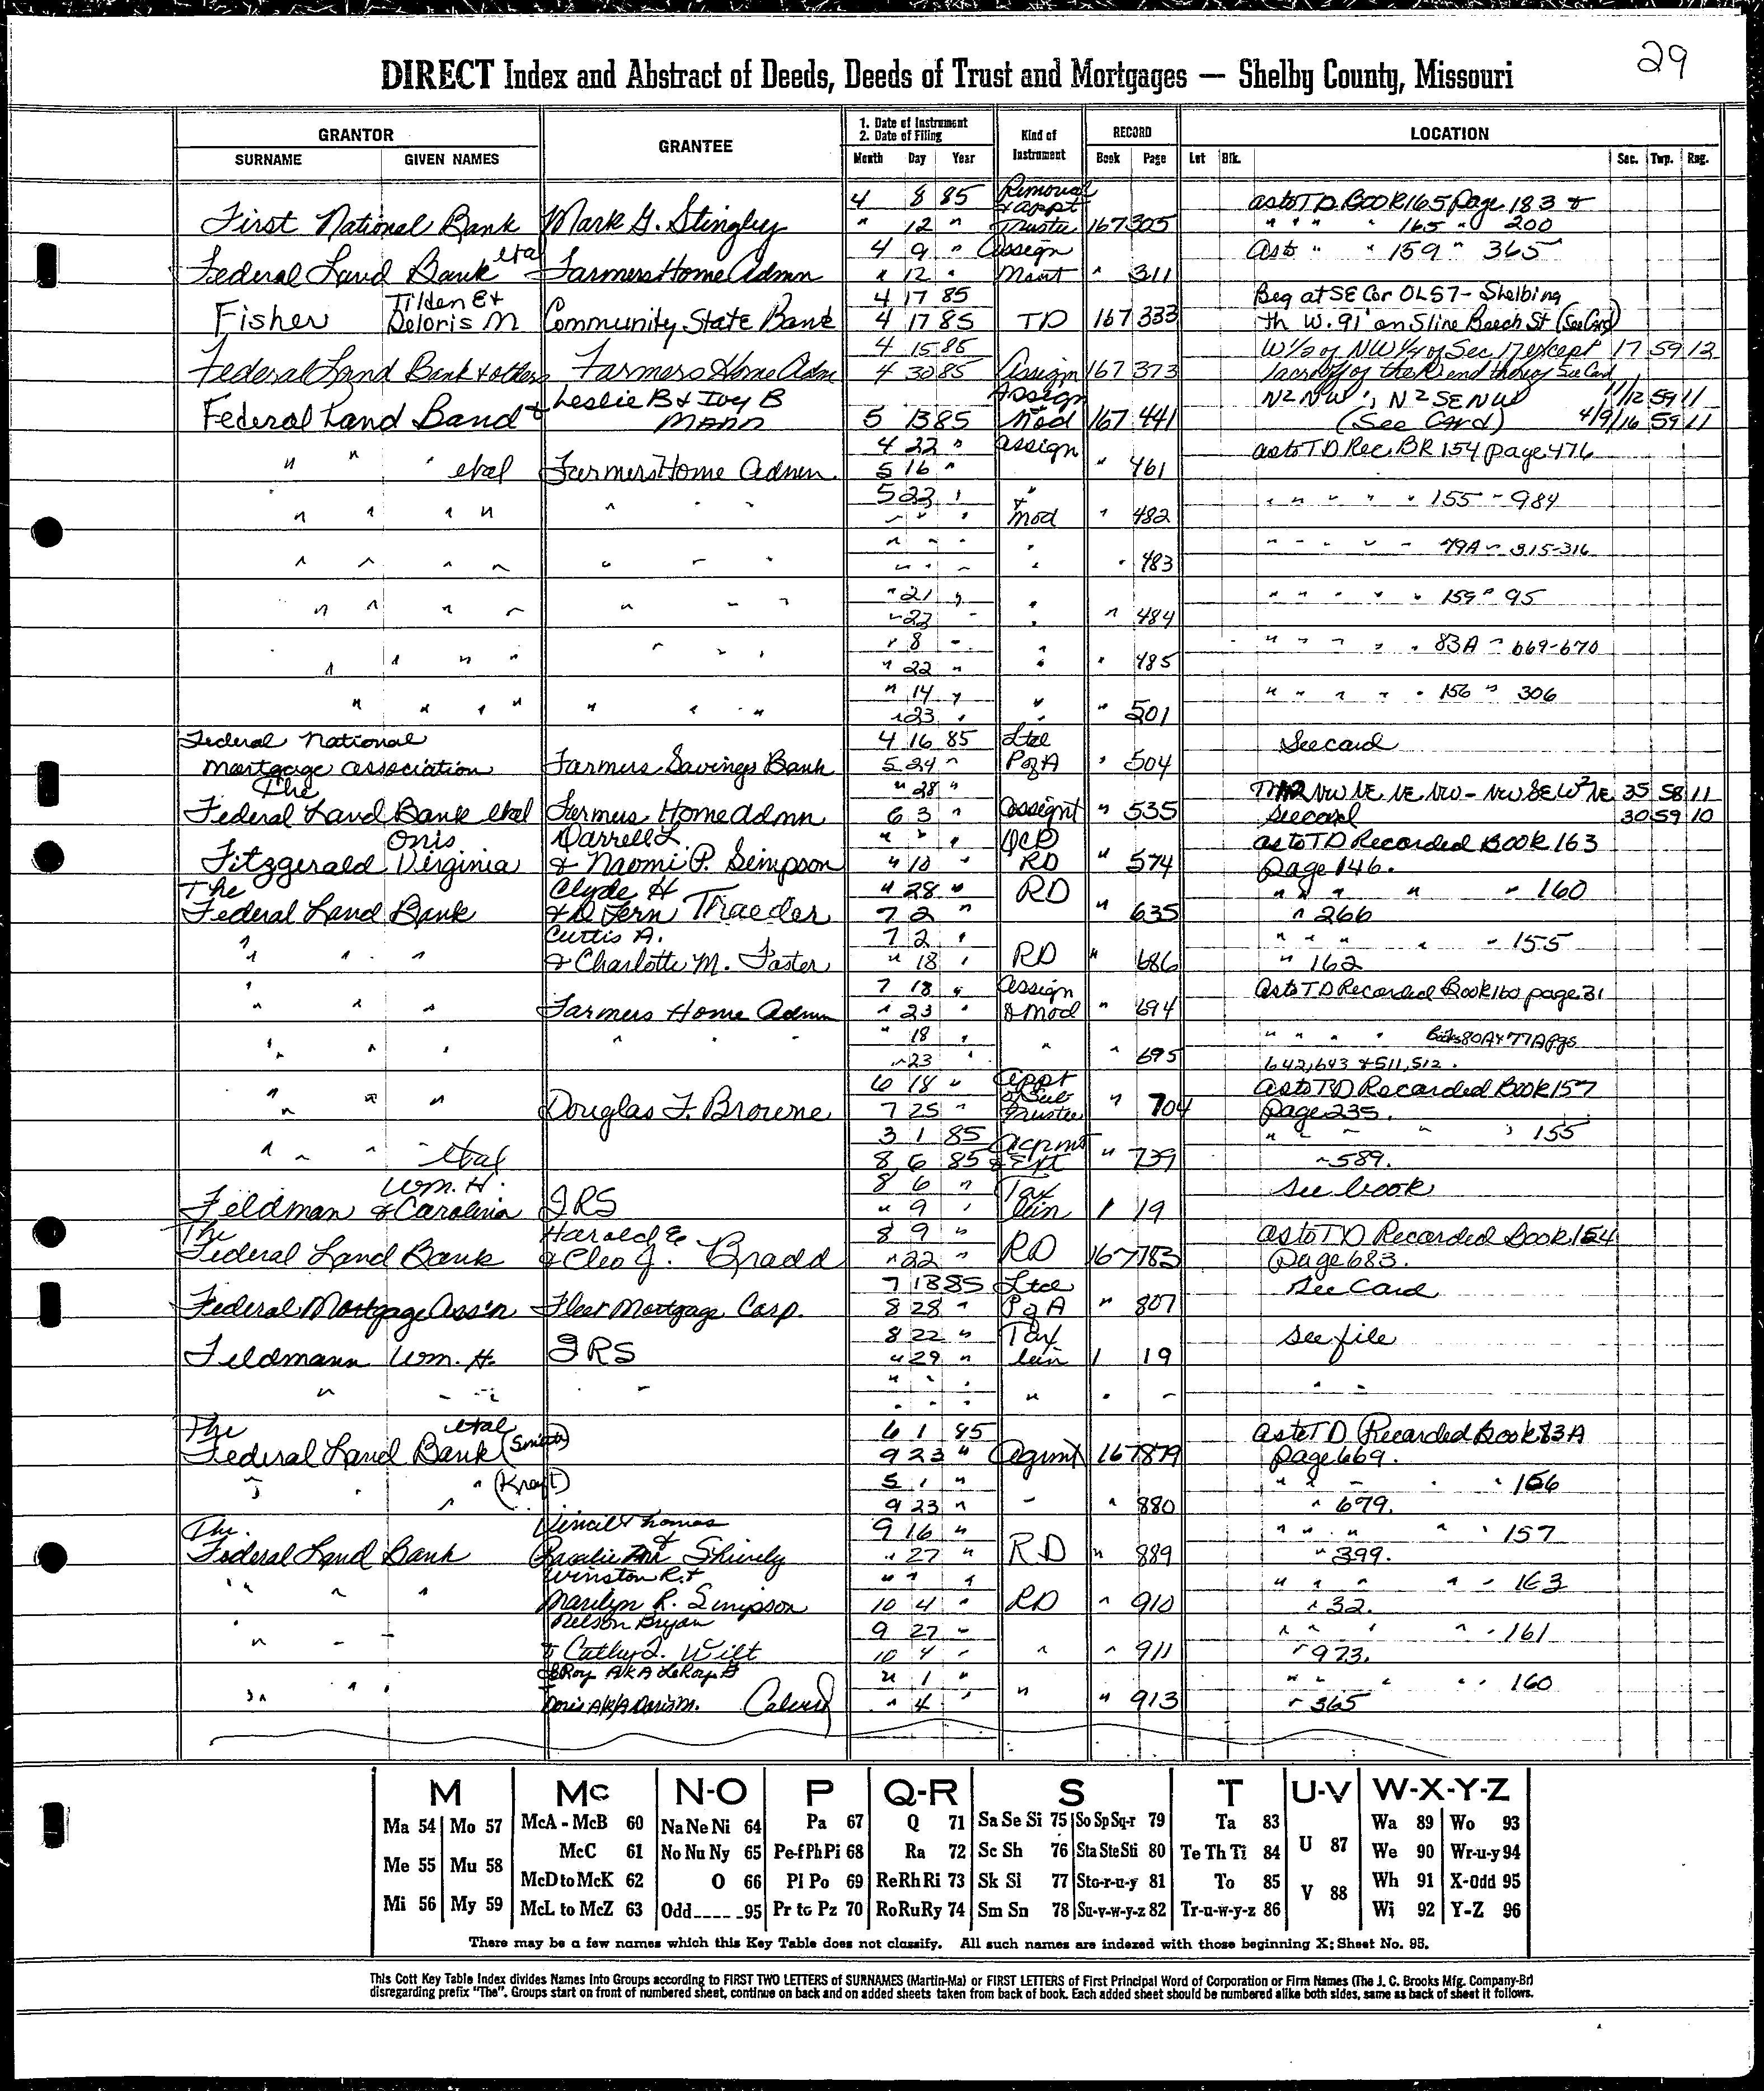 29
DIRECT Index and Abstract of Deeds, Deeds of Trust and Mortgages — Shelby County, Missouri
GRANTOR GRANTEE 1. Date of Instrument 2. Date of Filing Kind of Instrument RECORD LOCATION
SURNAME GIVEN NAMES Month Day Year Book Page Lot Blk. Sec. Twp. Rng.
4 8 85 Removal & appt as to T.D. BOOK 165 Page 183 &
First National Bank Mark G. Stingley " 12 " Trustee 167 305 " " " " 165 " 200
etal 4 9 " Assign As to " " 159 " 365
Federal Land Bank Farmers Home Admn " 12 " Mont " 311
Tilden E & 4 17 85 Beg at SE Cor OL 57 - Shelbina
Fisher Deloris M Community State Bank 4 17 85 TD 167 333 th W. 91' on S line Beech St (See Card)
4 15 85 W 1/2 of NW 1/4 of Sec 17 except 17 59 12
Federal Land Bank & others Farmers Home Adm 4 30 85 Assign 167 373 1 acre off of the end thereof See Card
Leslie B & Ivy B Assign N2 NW ; N2 SE NW 11/12 59 11
Federal Land Band & Mann 5 13 85 & Mod 167 441 (See Card) 4/9/16 59 11
4 22 " assign as to TD Rec. BK 154 page 476
" " " etal Farmers Home Admn. 5 16 " " 461
5 22 " " " " " " " 155 " 984
" " " " " " " " " " & Mod " 482
" " " " " " " " 79A " 315-316
" " " " " " " " " " " " 483
" 21 " " " " " " 159 " 95
" " " " " " " " 22 " " " 484
" 8 " " " " " " 83A " 669-670
" " " " " " " " 22 " " " 485
" 14 " " " " " " 156 " 306
" " " " " " " " 23 " " " 501
Federal National 4 16 85 Ltd See card
Mortgage Association Farmers Savings Bank 5 24 " P of A " 504
The " 28 " NW NE NE NW - NW SE W2 NE 35 58 11
Federal Land Bank etal Farmers Home Admn 6 3 " Assignt " 535 See card 30 59 10
Onis Darrell L. " " " QCD as to TD Recorded Book 163
Fitzgerald Virginia & Naomi P. Simpson " 10 " RD " 574 page 146.
The Clyde H " 28 " RD " " " " " 160
Federal Land Bank & D Fern Traeder 7 2 " " 635 " 266
Curtis A. 7 2 " " " " " " 155
" " " & Charlotte M. Foster " 18 " RD " 686 " 162
7 18 " Assign As to TD Recorded Book 160 page 31
" " " Farmers Home Admn " 23 " & Mod " 694
" 18 " " " " " Books 80A & 77A pgs
" " " " " " " 23 " " " 695 642,643 & 511,512.
6 18 " Appt As to TD Recorded Book 157
" " " Douglas F. Browne 7 25 " of Sub Trustee " 704 page 235.
3 1 85 Agrmt " " " " " 155
" " " etal 8 6 85 & Ext " 739 " 589.
Wm. H. 8 6 " Tax See book
Feldman & Carolina IRS " 9 " lein 1 19
The Harold E 8 9 " As to TD Recorded Book 154
Federal Land Bank & Cleo J. Bradd " 22 " RD 167 783 page 683.
7 18 85 Ltd See Card
Federal Mortgage Ass'n Fleet Mortgage Corp. 8 28 " P of A " 807
8 22 " Tax See file
Feldmann Wm. H. IRS " 29 " lein 1 19
" " " " " " "
" " " " " " " " " "
The etal 6 1 85 As to TD Recorded Book 83A
Federal Land Bank 9 23 " Agrmt 167 879 page 669.
(Kraft) 5 1 " " " " " 156
" " " 9 23 " " " 880 " 679.
The 9 16 " " " " " " 157
Federal Land Bank Shively " 27 " RD " 889 " 399.
Winston R. & " " " " " " " " 163
" " " Marilyn R. Simpson 10 4 " RD " 910 " 32.
Nelson Bryan 9 27 " " " " " " 161
" " " & Cathy L. Wilt 10 4 " " " 911 " 973.
LeRoy AKA LeRoy G " 1 " " " " " " 160
" " " Doris AKA Doris M. " 4 " " " 913 " 365
M Mc N-O P Q-R S T U-V W-X-Y-Z
Ma 54 Mo 57 McA - McB 60 Na Ne Ni 64 Pa 67 Q 71 Sa Se Si 75 So Sp Sq-r 79 Ta 83 U 87 Wa 89 Wo 93
Me 55 Mu 58 McC 61 No Nu Ny 65 Pe-f Ph Pi 68 Ra 72 Sc Sh 76 Sta Ste Sti 80 Te Th Ti 84 V 88 We 90 Wr-u-y 94
McD to McK 62 O 66 Pl Po 69 Re Rh Ri 73 Sk Si 77 Sto-r-u-y 81 To 85 Wh 91 X-Odd 95
Mi 56 My 59 McL to McZ 63 Odd_ _ _ _ -95 Pr to Pz 70 Ro Ru Ry 74 Sm Sn 78 Su-v-w-y-z 82 Tr-u-w-y-z 86 Wi 92 Y-Z 96
There may be a few names which this Key Table does not classify. All such names are indexed with those beginning X; Sheet No. 95.
This Cott Key Table Index divides Names Into Groups according to FIRST TWO LETTERS of SURNAMES (Martin-Ma) or FIRST LETTERS of First Principal Word of Corporation or Firm Names (The J. C. Brooks Mfg. Company-Br)
disregarding prefix "The". Groups start on front of numbered sheet, continue on back and on added sheets taken from back of book. Each added sheet should be numbered alike both sides, same as back of sheet it follows.